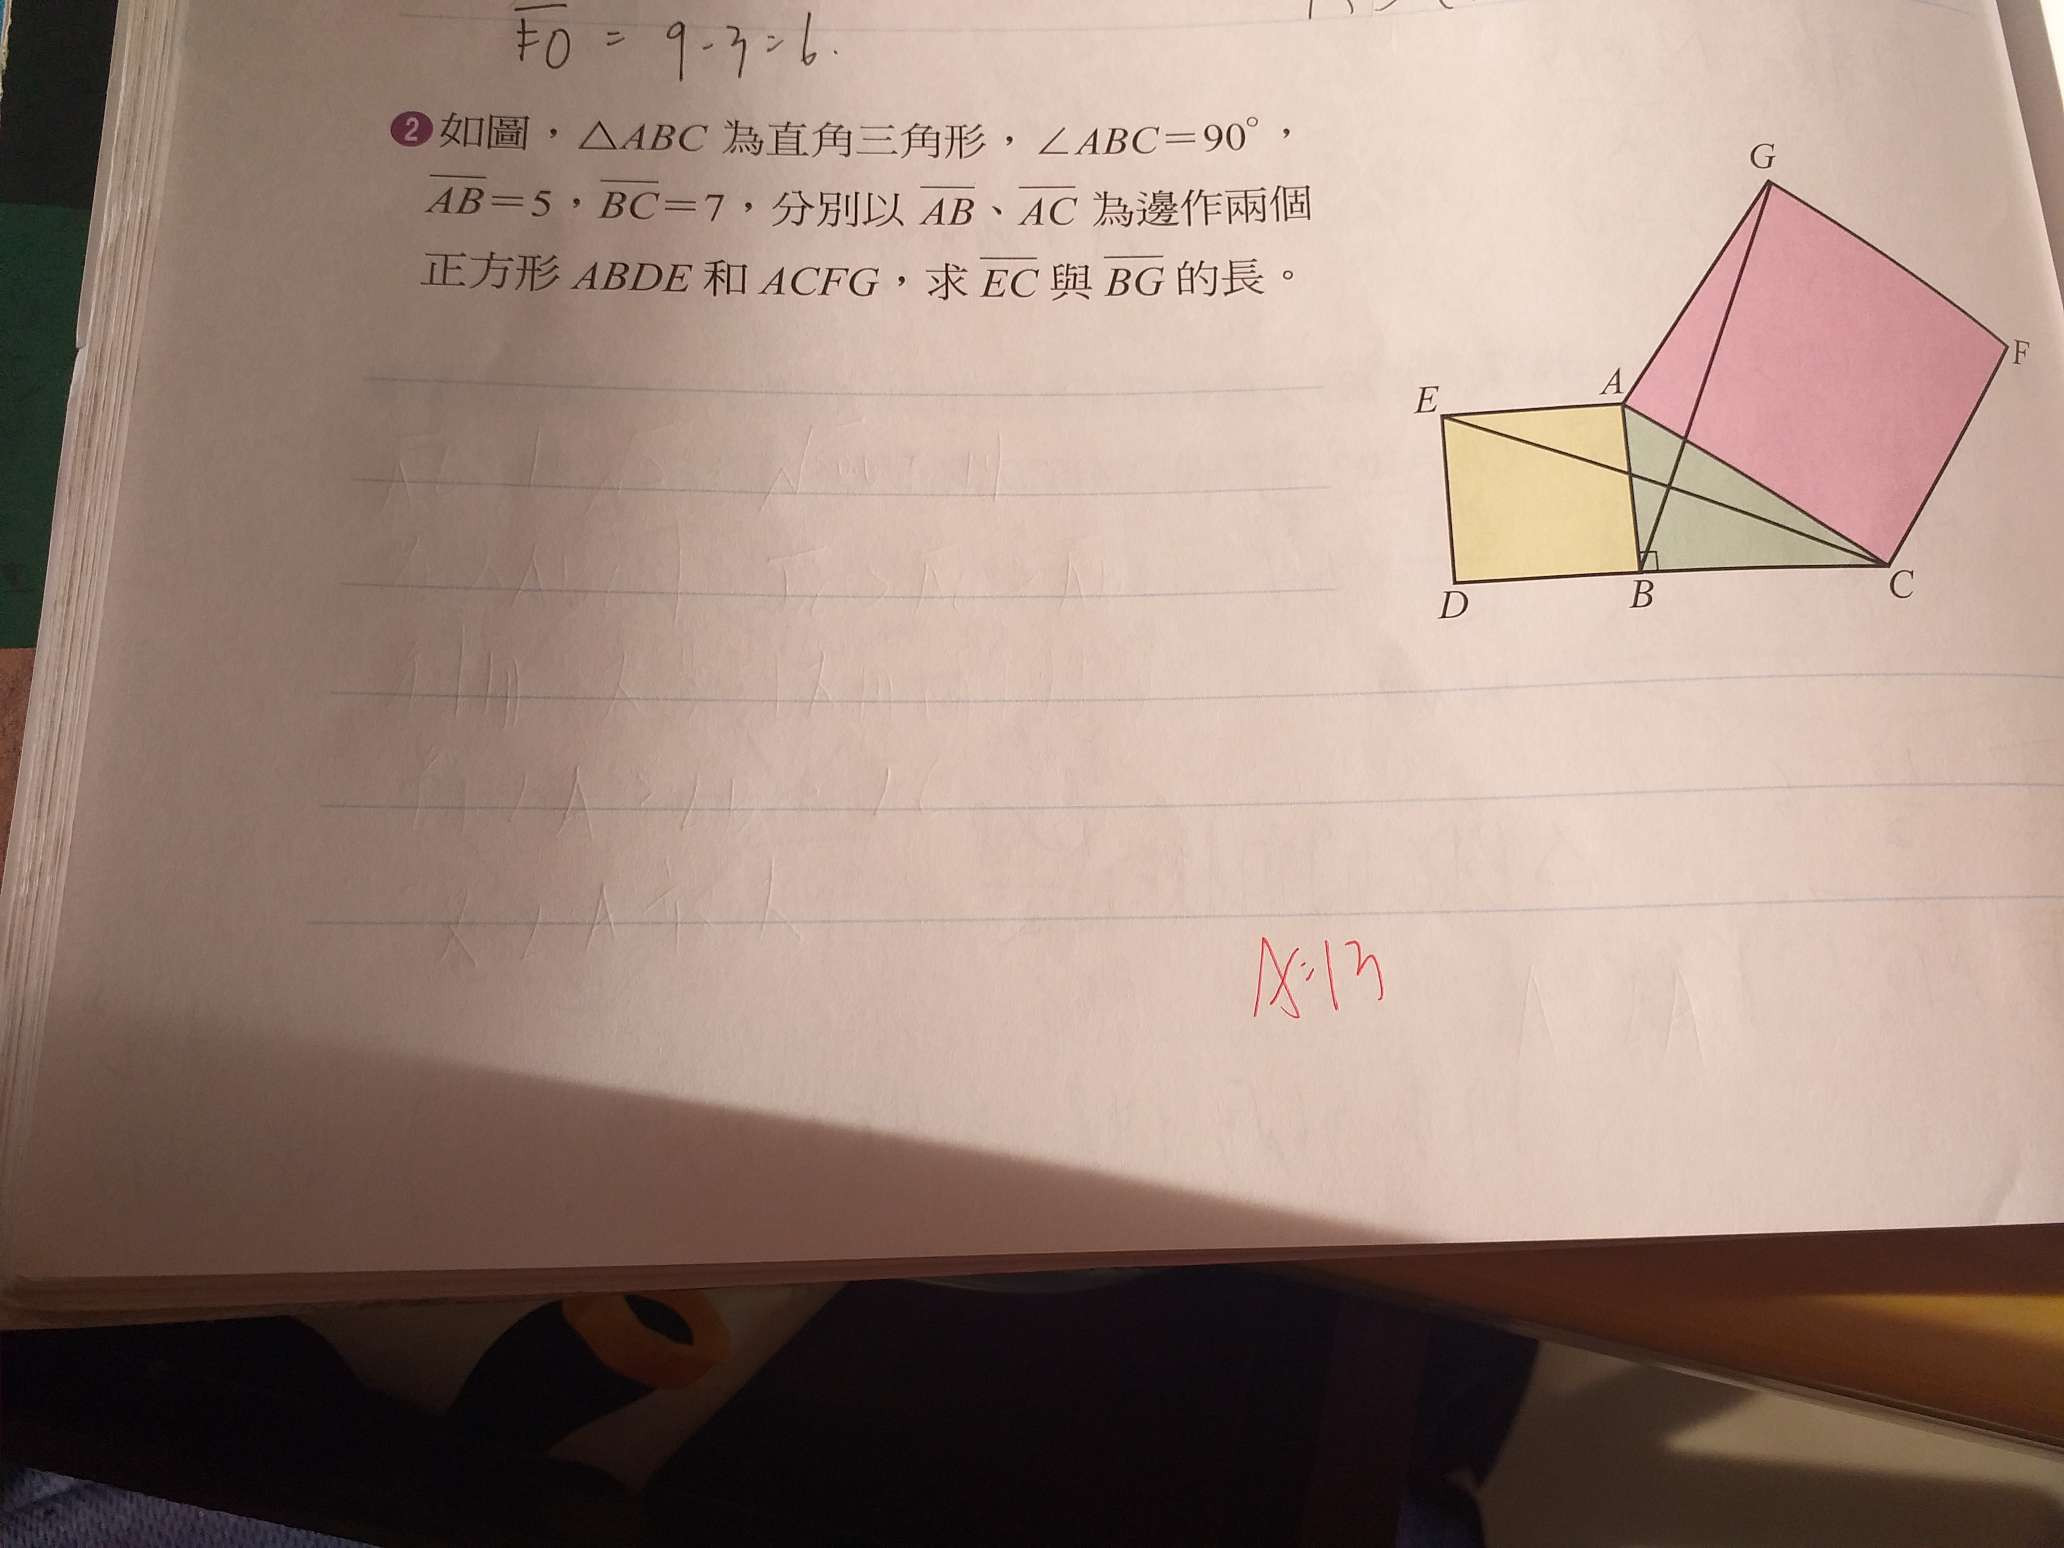 FO = 9-3=6.
2 如圖，△ABC 為直角三角形，∠ABC=90°，
AB=5，BC=7，分別以 AB、AC 為邊作兩個
正方形 ABDE 和 ACFG，求 EC 與 BG 的長。
G
F
A
E
D
B
C